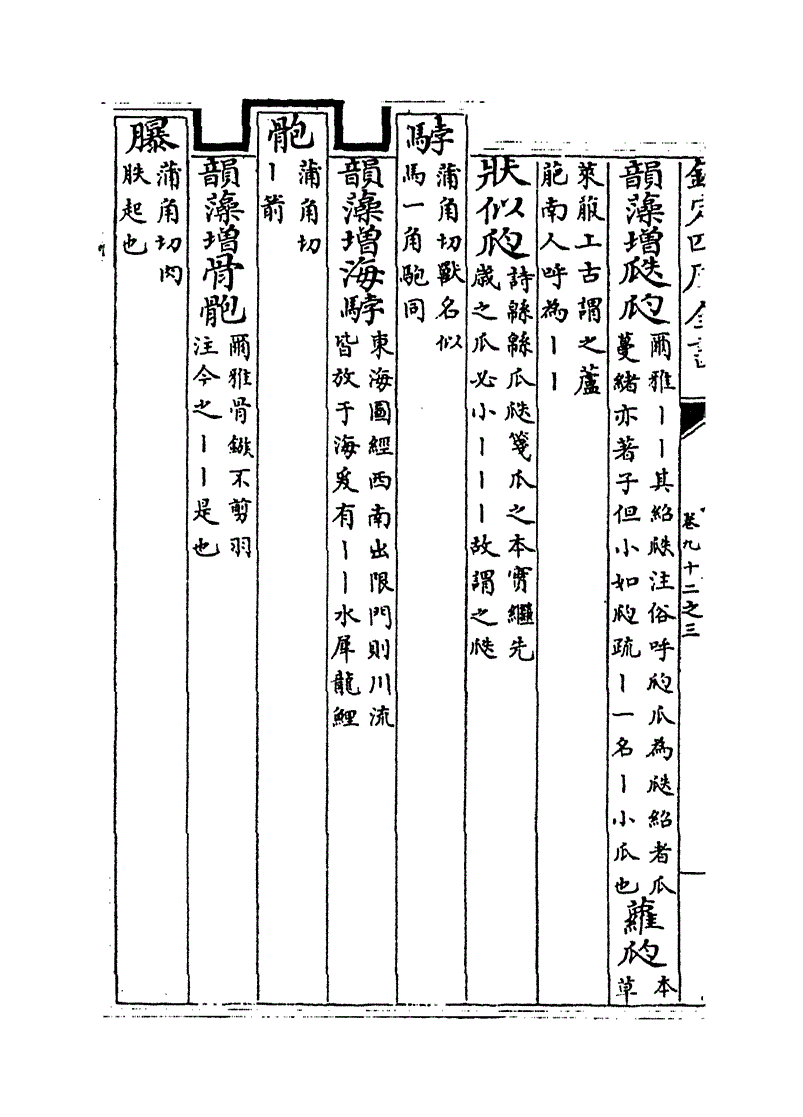 欽定四庫全書
卷九十二之三
韻藻増瓞瓝爾雅丨丨其紹瓞注俗呼瓝瓜為瓞紹者瓜
蔓緒亦著子但小如瓝疏丨一名丨小瓜也蘿瓝本草
萊菔上古謂之蘆
萉南人呼為丨丨
狀似瓝詩緜緜瓜瓞箋瓜之本實繼先
歳之瓜必小丨丨丨故謂之瓞
䮀蒲角切獸名似
馬一角駞同
韻藻増海䮀東海圖經西南出限門則川流
皆放于海爰有丨丨水犀龍鯉
骲蒲角切
丨箭
韻藻増骨骲爾雅骨鏃不剪羽
注今之丨丨是也
㬥蒲角切肉
胅起也